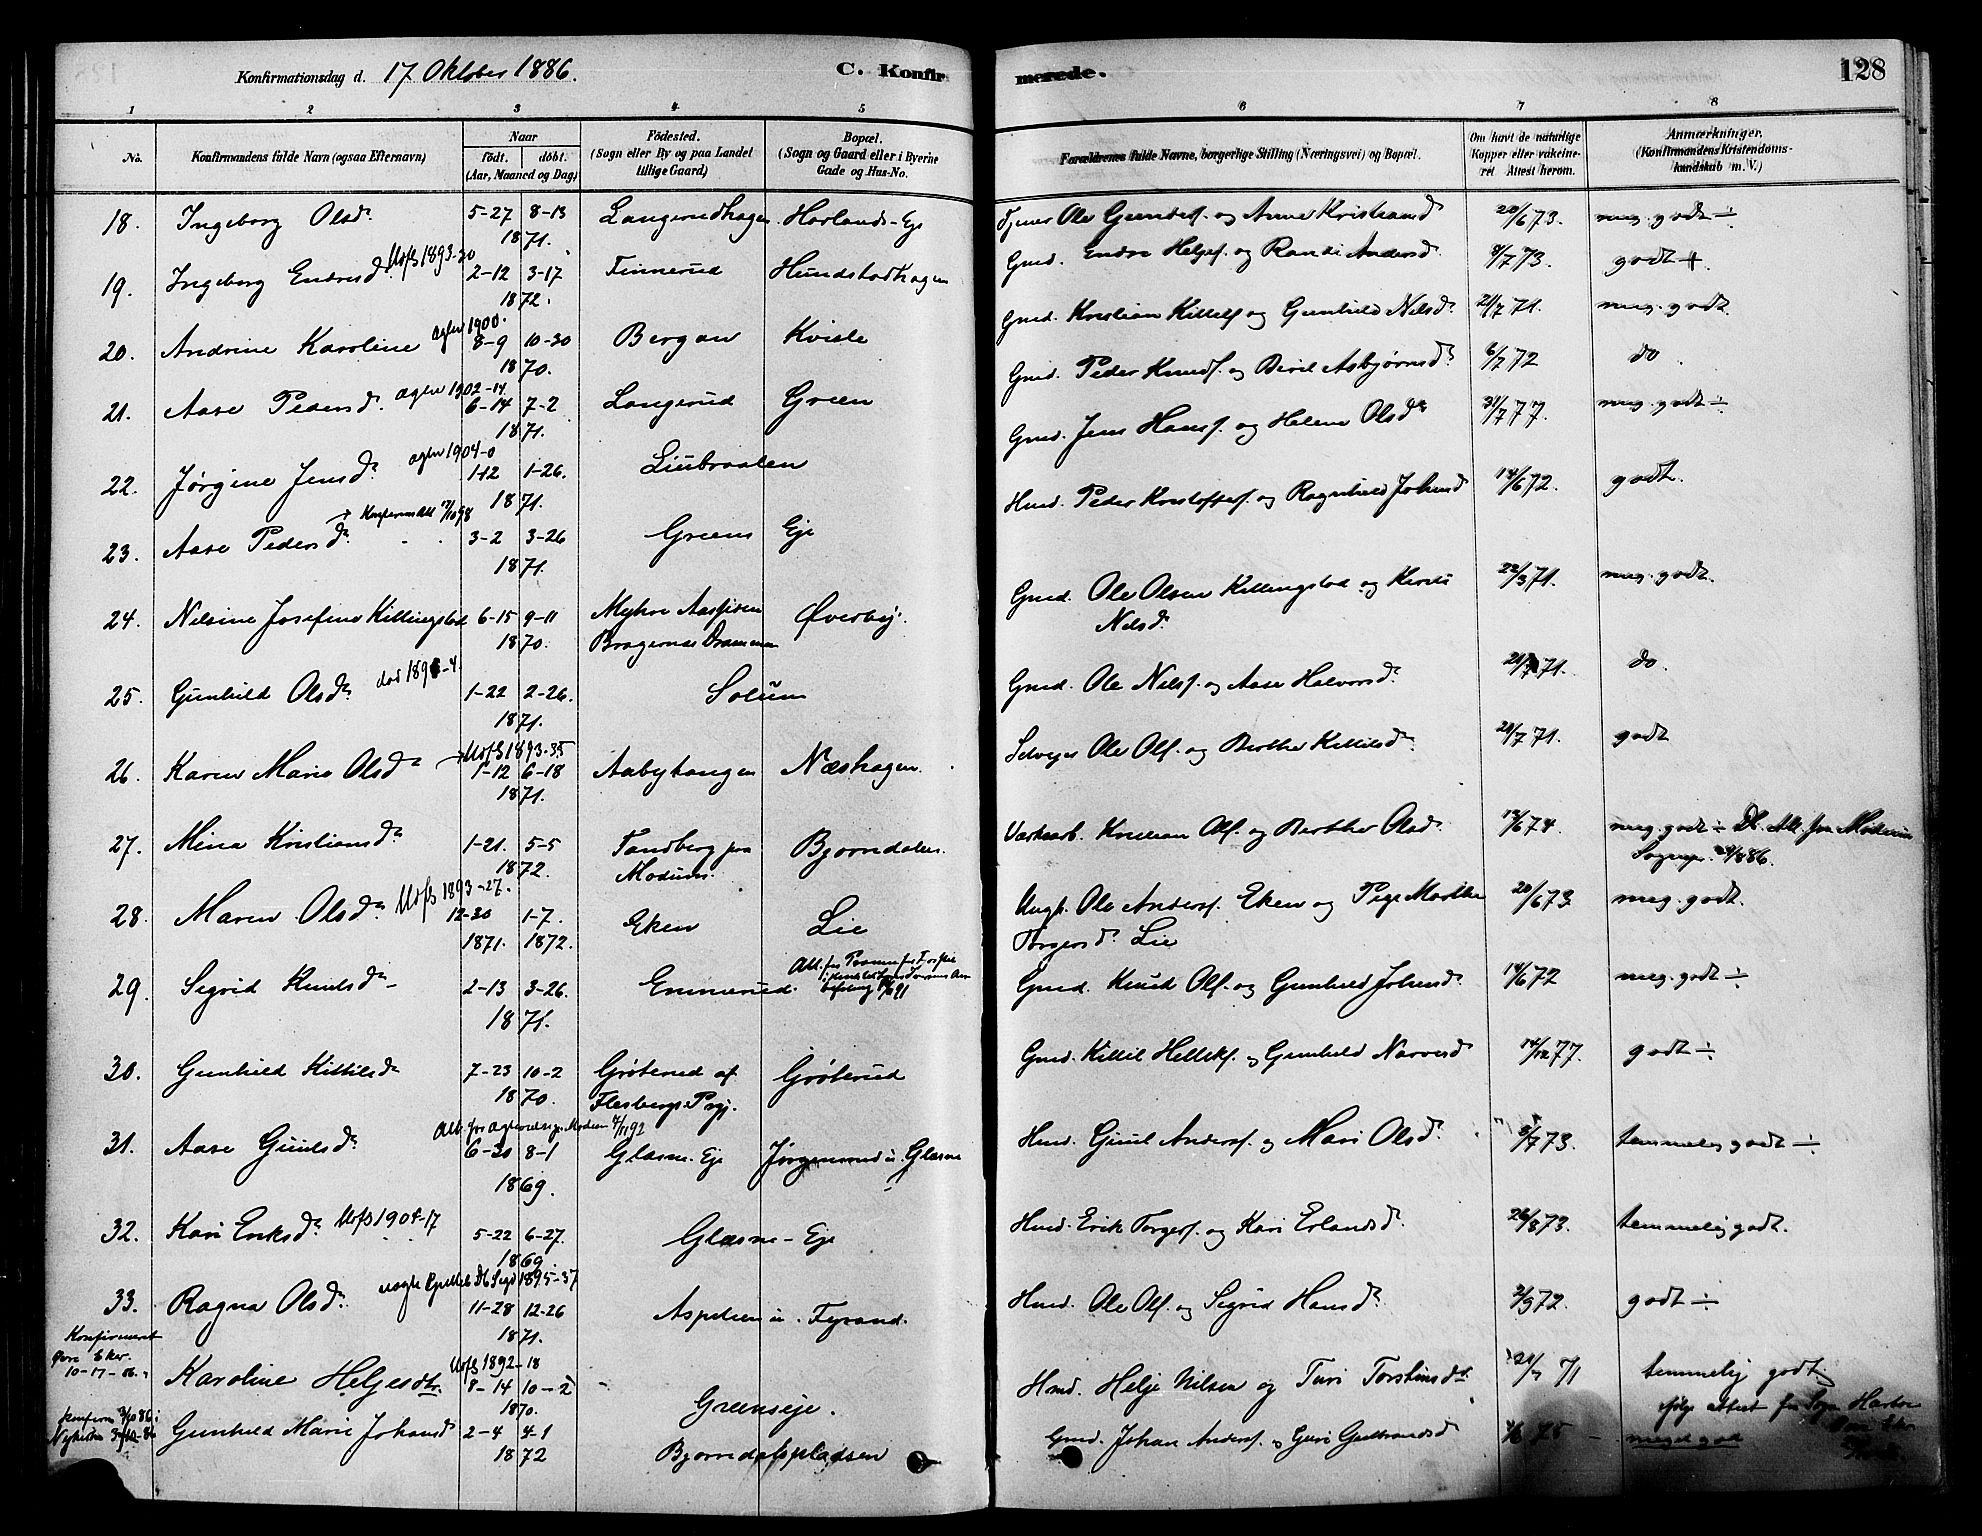 Konfirmationsdag d. 17 Oktober 1886. C. Konfirmerede. 128
1 2 3 4 5 6 7 8
No. Konfirmandens fulde Navn (ogsaa Efternavn) Naar født. døbt. (Aar, Maaned og Dag) Fødested. (Sogn eller By og paa Landet tillige Gaard) Bopæl. (Sogn og Gaard eller i Byerne Gade og Hus-No. Forældrenes fulde Navne, borgerlige Stilling (Næringsvei) og Bopæl. Om havt de naturlige Kopper eller vakcineret Attest herom. Anmærkninger. (Konfirmandens Kristendomskundskab m. V.)
18. Ingeborg Olsdr 5-27 8-13 1871. Langerudhagen Horlands-Eje Tjener Ole Gundersf. og Anne Kristiansd 20/6 73. meg. godt ÷
19. Ingeborg Endresdr Udfl 1893-20 2-12 3-17 1872. Finnerud Hundstadhagen Gmd. Endre Helgesf. og Randi Andersd 8/7 73. godt +.
20. Andrine Karoline agter 1900. 8-9 10-30 1870. Bergan Kvisle Gmd. Kristian Kittilsf og Gunhild Nilsdr 21/7 71. meg. godt
21. Aase Pedersdr. agter 1902-14 6-14 7-2 1871. Langerud Green Gmd. Peder Knudsf. og Berit Asbjørnsdr 6/7 72 do.
22. Jørgine Jensdr agter 1904-0 1-12 1-26. 1871. Liubraaten Gmd. Jens Hansf. og Helene Olsdr 31/7 77. meg. godt ÷
23. Aase Pedersdr. 3-2 3-26 1871. Greens Eje Hmd. Peder Kristoffersf. og Ragnhild Johnsd 14/6 72. godt.
24. Nilsine Josefine Killingstad 6-15 9-11 1870. Myhre Aassiden Bragernæs Drammen Øverby. Gmd. Ole Olsen Killingstad og Kirsti Nilsdr 22/3 71. meg. godt.
25. Gunhild Olsdr 1-22 2-26. 1871. Solum Gmd. Ole Nilsf. og Aase Halvorsdr 21/7 71. do.
26. Karen Marie Olsdr Udfl 1893-35 1-12 6-18 1871. Aabyhaugen Næshagen. Selvejer Ole Olsf. og Berthe Kittilsdr. 21/7 71. godt
27. Mina Kristiansdr 1-21. 5-5 1872. Tandberg paa Modum. Bjørndalen. Kristian Olsf. og Berthe Olsdr. 13/6 74. meg. godt ÷ Db. Att. fra Modum Sognepr. /8 86.
28. Maren Olsdr Udfl 1893-27. 12-30 1-7. 1871. 1872. Eken Lie Ungk. Ole Andersf. Eken og Pige Marthe Torgersdr. Lie 20/6 73 meg. godt.
29. Sigrid Knudsdr 2-13 3-26. 1871. Emmerud. Gmd. Knud Olsf. og Gunhild Johnsdr 14/6 72 meg. godt ÷
30. Gunhild Kittilsdr 7-23 10-2 1870. Grøterud af Flesbergs Prgj. Grøterud Gmd. Kittil Helleksf. og Gunhild Narvesd 14/12 77. godt ÷
31. Aase Gulsdr Att. for 6-30 8-1 1869. Glasne. Eje Jørgensrud u. Glasne Hmd. Gul Andersf. og Mari Olsdr. 8/7 73. temmelig godt ÷
32. Kari Eriksdr Udfl 1904-17 5-22 6-27. 1869 Glasne - Eje Hmd. Erik Torgersf. og Kari Erlandsdr. 26/8 73. temmelig godt.
33. Ragna Olsdr. 1895-37 11-28 12-26 1871. Aspelien u. Fyrand. Hmd. Ole Olsf. og Sigrid Hansdr 2/9 72. godt ÷
Konfirmeret Øvre Eker 10-17-86. Karoline Helgesdtr. Udfl 1892-18 8-14 10-2 1870. Greenseje. Hmd. Helje Nilsen og Turi Torstensdt. 21/7 71 temmelig godt ifølge attest fra
konfirm 3/10 86 i Gunhild Marie Johansd 2-4 4-1 1872 Bjørndalspladsen Gmd. Johan Andersf. og Guri Gulbrandsd 75 - meget god